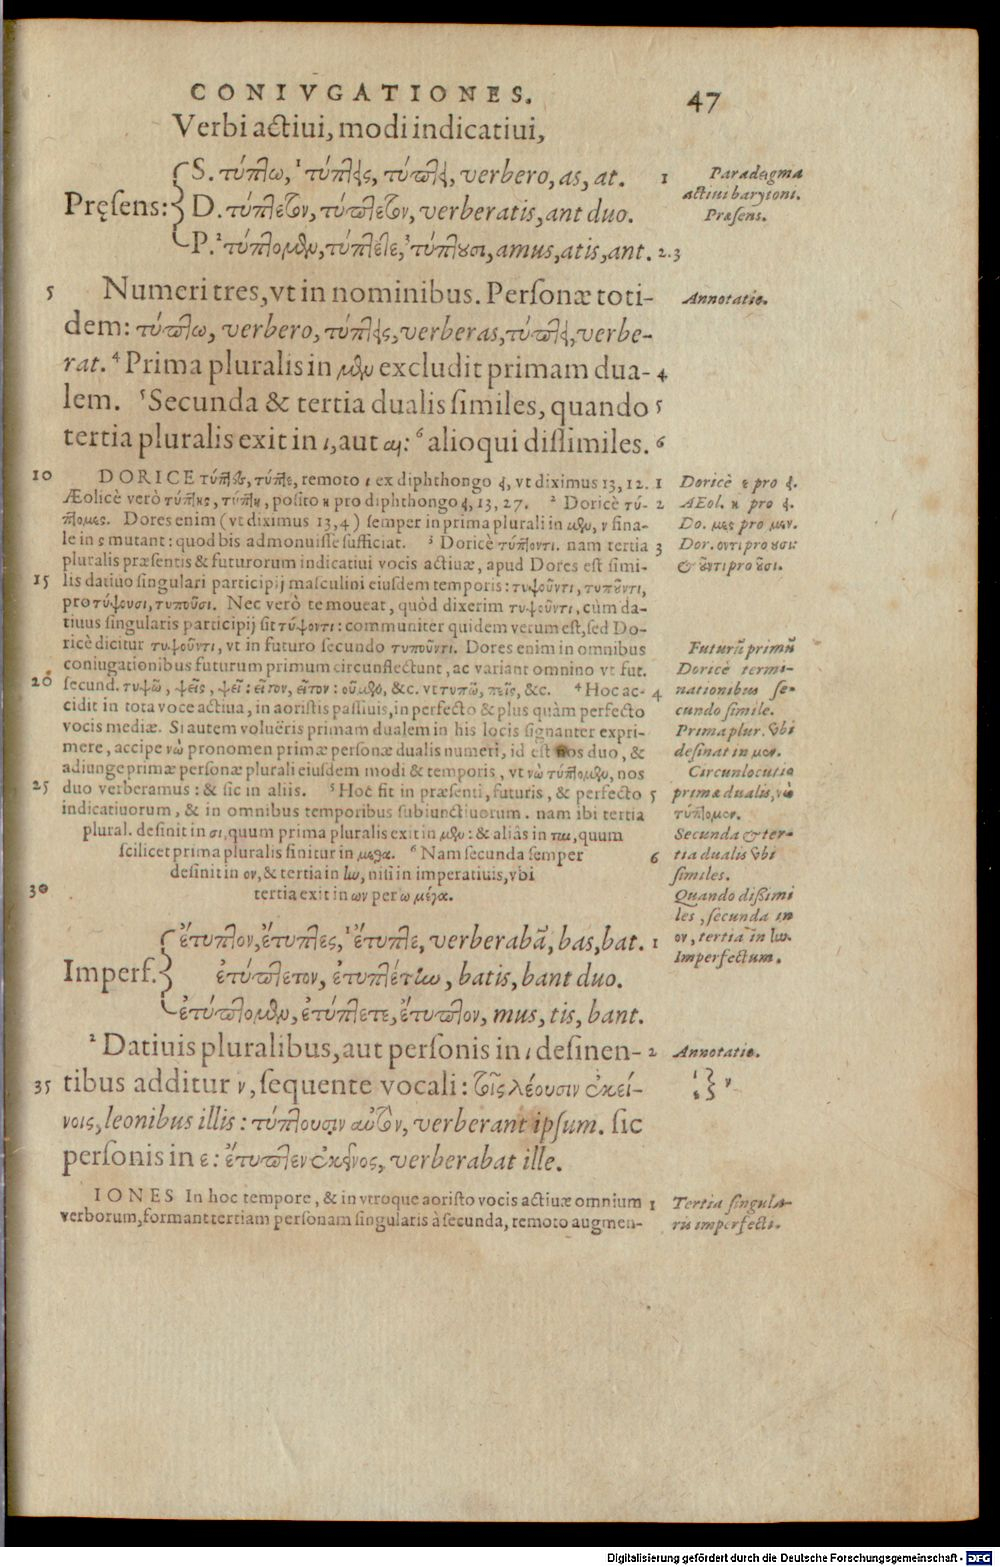 CONIVGATIONES. 47
Verbi actiui, modi indicatiui,
Pręsens:
S. τύπτω, ¹τύπτεις, τύπτει, verbero, as, at. 1
D. τύπτετον, τύπτετον, verberatis, ant duo.
P. ²τύπτομεν, τύπτετε, ³τύπτουσι, amus, atis, ant. 2.3
Paradeigma
actiui barytoni.
Præsens.
5 Numeri tres, vt in nominibus. Personæ toti-
dem: τύπτω, verbero, τύπτεις, verberas, τύπτει, verbe-
rat. ⁴Prima pluralis in μεν excludit primam dua- 4
lem. ⁵Secunda & tertia dualis similes, quando 5
tertia pluralis exit in ι, aut αι: ⁶alioqui dissimiles. 6
Annotatio.
10 DORICE τύπτες, τύπτε, remoto ι ex diphthongo ει, vt diximus 13, 12. 1
Æolicè verò τύπτης, τύπτη, posito η pro diphthongo ει, 13, 27. ² Doricè τύ- 2
πτομες. Dores enim (vt diximus 13,4) semper in prima plurali in μεν, ν fina-
le in ς mutant: quod bis admonuisse sufficiat. ³ Doricè τύπτοντι. nam tertia 3
pluralis præsentis & futurorum indicatiui vocis actiuæ, apud Dores est simi-
15 lis datiuo singulari participij masculini eiusdem temporis: τυψοῦντι, τυποῦντι,
pro τύψουσι, τυποῦσι. Nec verò te moueat, quòd dixerim τυψοῦντι, cùm da-
tiuus singularis participij sit τύψοντι: communiter quidem verum est, sed Do-
ricè dicitur τυψοῦντι, vt in futuro secundo τυποῦντι. Dores enim in omnibus
coniugationibus futurum primum circunflectunt, ac variant omnino vt fut.
20 secund. τυψῶ, ψεῖς, ψεῖ: εῖτον, εῖτον: οῦμεν, &c. vt τυπῶ, πεῖς, &c. ⁴ Hoc ac- 4
cidit in tota voce actiua, in aoristis passiuis, in perfecto & plus quàm perfecto
vocis mediæ. Si autem voluëris primam dualem in his locis signanter expri-
mere, accipe νὼ pronomen primæ personæ dualis numeri, id est nos duo, &
adiunge primæ personæ plurali eiusdem modi & temporis, vt νὼ τύπτομεν, nos
25 duo verberamus: & sic in aliis. ⁵ Hoc fit in præsenti, futuris, & perfecto 5
indicatiuorum, & in omnibus temporibus subiunctiuorum. nam ibi tertia
plural. desinit in σι, quum prima pluralis exit in μεν: & aliàs in ται, quum
scilicet prima pluralis finitur in μεθα. ⁶ Nam secunda semper 6
desinit in ον, & tertia in ην, nisi in imperatiuis, vbi
30 tertia exit in ων per ω μέγα.
Doricè ε pro ει.
AEol. η pro ει.
Do. μες pro μεν.
Dor. οντι pro ουσι:
& οῦντι pro οῦσι.
Futurũ primũ
Doricè termi-
nationibus se-
cundo simile.
Prima plur. vbi
desinat in μεν.
Circunlocutio
primæ dualis, νὼ
τύπτομεν.
Secunda & ter-
tia dualis vbi
similes.
Quando dißimi
les, secunda in
ον, tertia in ην.
Imperfectum.
Imperf.
ἔτυπτον, ἔτυπτες, ¹ἔτυπτε, verberabã, bas, bat. 1
ἐτύπτετον, ἐτυπτέτην, batis, bant duo.
ἐτύπτομεν, ἐτύπτετε, ἔτυπτον, mus, tis, bant.
²Datiuis pluralibus, aut personis in ι desinen- 2
35 tibus additur ν, sequente vocali: τοῖς λέουσιν ἐκεί-
νοις, leonibus illis: τύπτουσιν αὐτὸν, verberant ipsum. sic
personis in ε: ἔτυπτεν ἐκεῖνος, verberabat ille.
Annotatio.
ι ε } ν
IONES In hoc tempore, & in vtroque aoristo vocis actiuæ omnium 1
verborum, formant tertiam personam singularis à secunda, remoto augmen-
Tertia singula-
ris imperfecti.
Digitalisierung gefördert durch die Deutsche Forschungsgemeinschaft - DFG